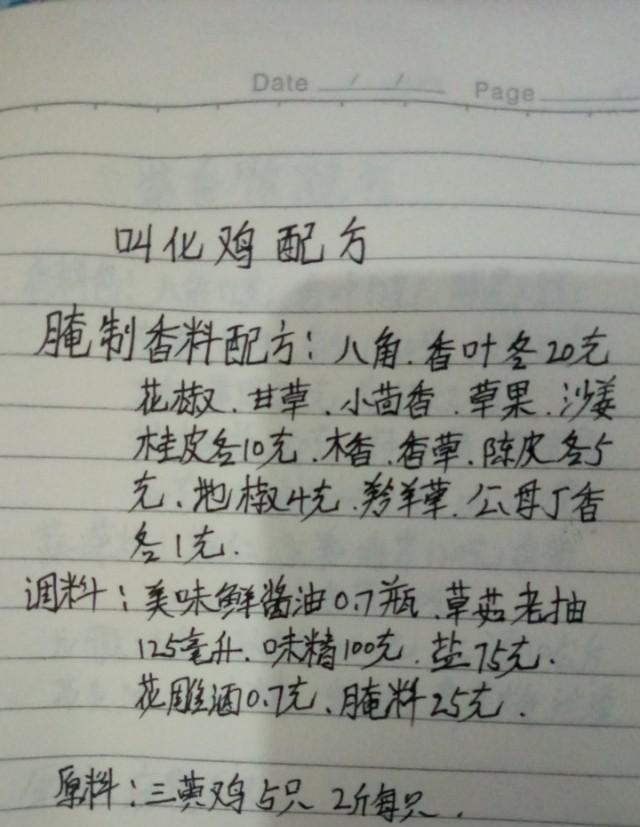 Date / / Page
叫化鸡配方
腌制香料配方：八角、香叶各20克
花椒、甘草、小茴香、草果、沙姜
桂皮各10克、木香、香草、陈皮各5
克、地椒4克、羚羊草、公母丁香
各1克.
调料：美味鲜酱油0.7瓶、草菇老抽
125毫升、味精100克、盐75克.
花雕酒0.7克、腌料25克.
原料：三黄鸡5只 2斤每只.